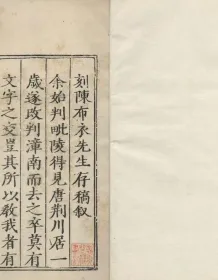 刻陳布衣先生存稿敘
余始判毗陵得見唐荊川居一
歲遂改判漳南而去之卒莫有
文字之交豈其所以敎我者有